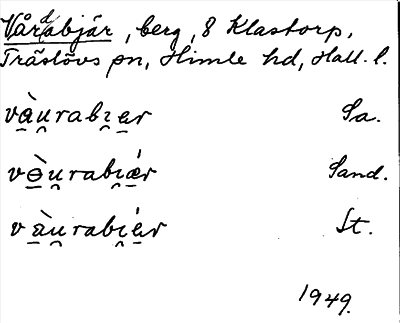 Vårdabjär, berg, 8 Klastorp,
Träslövs sn, Himle hd, Hall. l.
và̠u̯rabı̯e̠r Sa.
vɵ̠̀u̯rabı̯ǽ̠r Sand.
và̠u̯rabı̯é̠r St.
1949.